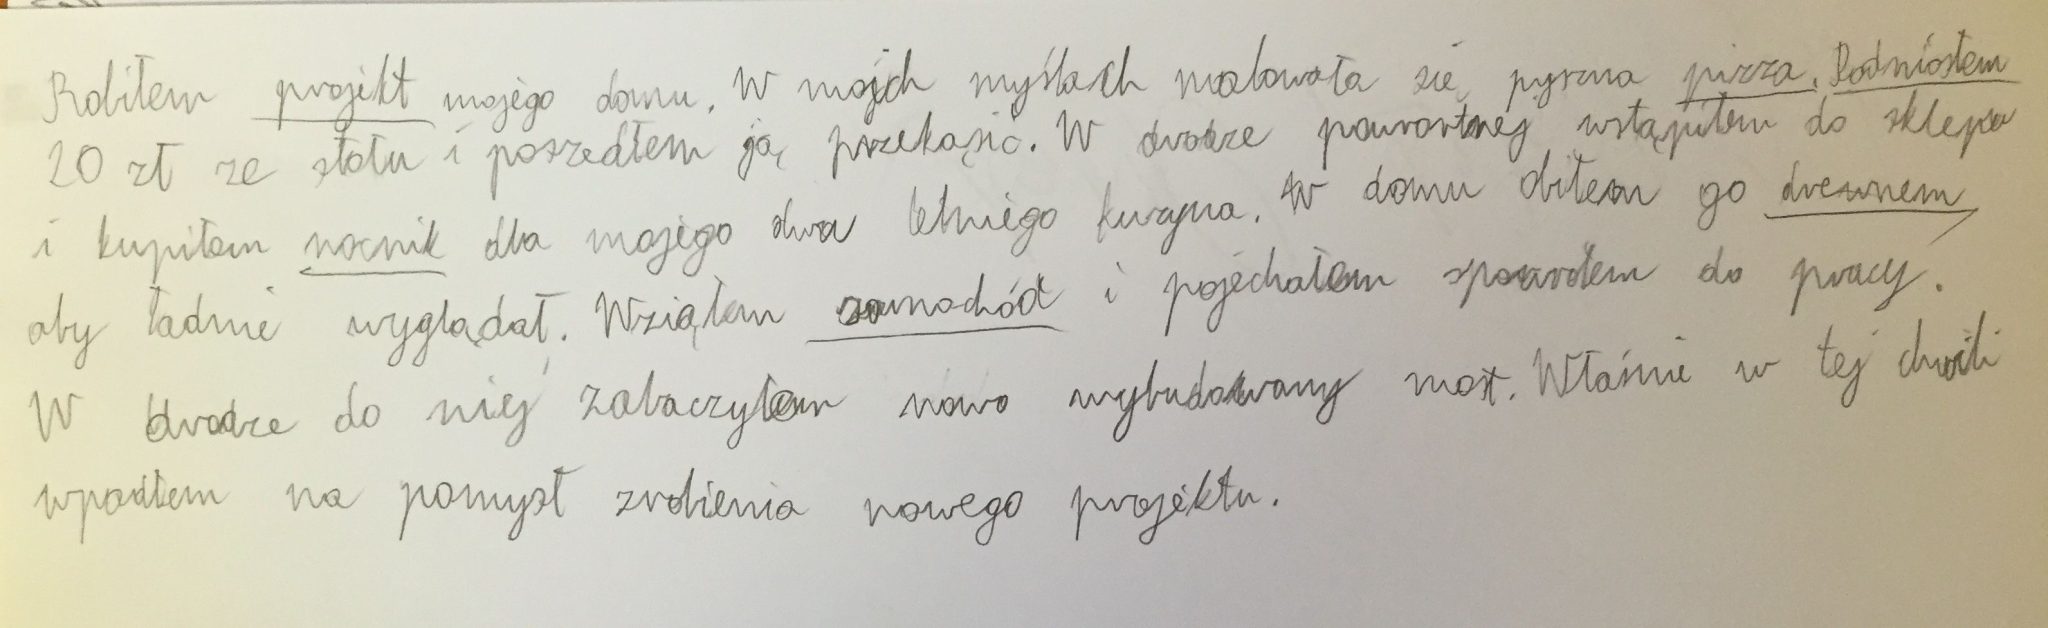 Robiłem projekt mojego domu. W moich myślach malowała się pyszna pizza. Podniosłem
20 zł ze stołu i poszedłem ją przekąsić. W drodze powrotnej wstąpiłem do sklepu
i kupiłem nocnik dla mojego dwu letniego kuzyna. W domu obiłem go drewnem
aby ładnie wyglądał. Wziąłem samochód i pojechałem spowrotem do pracy.
W drodze do niej zobaczyłem nowo wybudowany most. Właśnie w tej chwili
wpadłem na pomysł zrobienia nowego projektu.